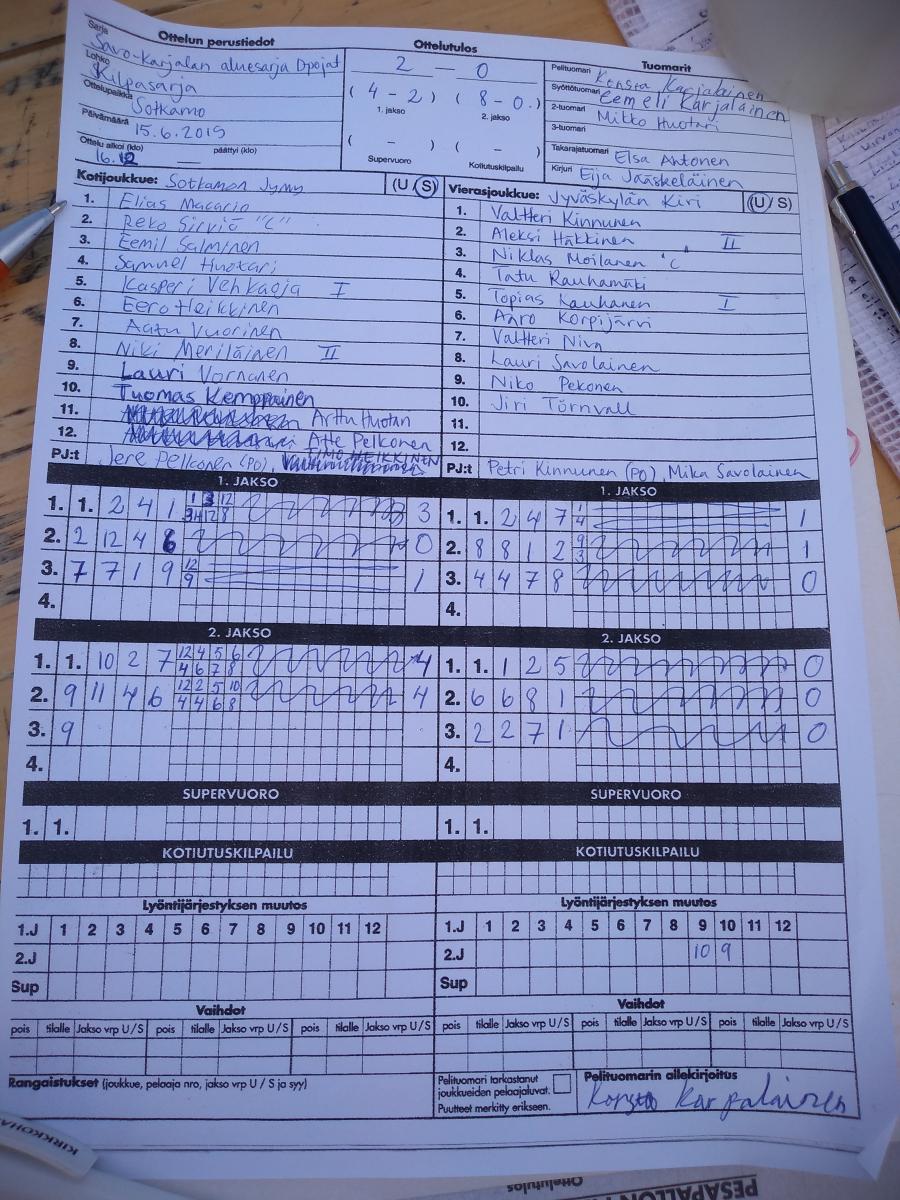 Ottelun perustiedot
Sarja Savo-Karjalan aluesarja Dpojat
Lohko Kilpasarja
Ottelupaikka Sotkamo
Päivämäärä 15.6.2019
Ottelu alkoi (klo) 16.12 — päättyi (klo)
Ottelutulos
2 — 0
( 4 - 2 ) ( 8 - 0 )
1. jakso 2. jakso
( - ) ( - )
Supervuoro Kotiutuskilpailu
Tuomarit
Pelituomari Konsta Karjalainen
Syöttötuomari Eemeli Karjalainen
2-tuomari Mikko Huotari
3-tuomari
Takarajatuomari Elsa Ahtonen
Kirjuri Eija Jääskeläinen
Kotijoukkue: Sotkamon Jymy (U / S)
1. Elias Macario
2. Reko Sirviö "C"
3. Eemil Salminen
4. Samuel Huotari
5. Kasperi Vehkaoja I
6. Eero Heikkinen
7. Aatu Vuorinen
8. Niki Meriläinen II
9. Lauri Vornanen
10. Tuomas Kemppainen
11. Arttu Huotari
12. Atte Pelkonen
PJ:t Jere Pelkonen (PO), TIMO HEIKKINEN
Vierasjoukkue: Jyväskylän Kiri (U / S)
1. Valtteri Kinnunen
2. Aleksi Häkkinen II
3. Niklas Moilanen "C
4. Tatu Rauhamäki
5. Topias Lauhanen I
6. Aaro Korpijärvi
7. Valtteri Niva
8. Lauri Savolainen
9. Niko Pekonen
10. Jiri Törnvall
11.
12.
PJ:t Petri Kinnunen (PO), Mika Savolainen
1. JAKSO
1. 1. 2 4 1 1 3 12 3
3 4 12 8
2. 2 12 4 6 0
3. 7 7 1 9 12 1
9
4.
1. JAKSO
1. 1. 2 4 7 1 1
4
2. 8 8 1 2 9 1
3
3. 4 4 7 8 0
4.
2. JAKSO
1. 1. 10 2 7 12 4 5 6 4
4 6 7 8
2. 9 11 4 6 12 2 5 10 4
4 4 6 8
3. 9
4.
2. JAKSO
1. 1. 1 2 5 0
2. 6 6 8 1 0
3. 2 2 7 1 0
4.
SUPERVUORO
1. 1.
SUPERVUORO
1. 1.
KOTIUTUSKILPAILU
KOTIUTUSKILPAILU
Lyöntijärjestyksen muutos
1.J 1 2 3 4 5 6 7 8 9 10 11 12
2.J
Sup
Lyöntijärjestyksen muutos
1.J 1 2 3 4 5 6 7 8 9 10 11 12
2.J 10 9
Sup
Vaihdot
pois tilalle Jakso vrp U / S pois tilalle Jakso vrp U / S pois tilalle Jakso vrp U / S
Vaihdot
pois tilalle Jakso vrp U / S pois tilalle Jakso vrp U / S pois tilalle Jakso vrp U / S
Rangaistukset (joukkue, pelaaja nro, jakso vrp U / S ja syy)
Pelituomari tarkastanut
joukkueiden pelaajaluvat.
Puutteet merkitty erikseen.
Pelituomarin allekirjoitus
Konsta Karjalainen
KIRKKOHA
Ottelutulos